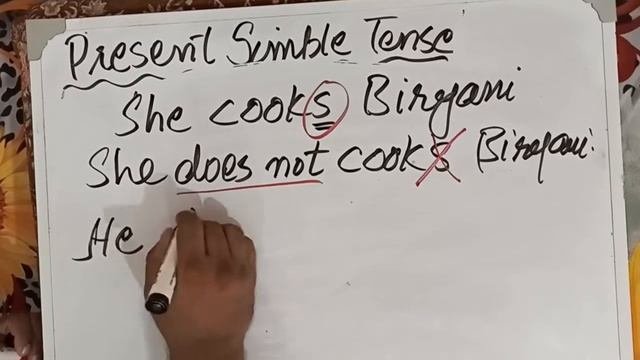 Present Simble Tense
She cooks Biryani
She does not cooks Biryani.
He